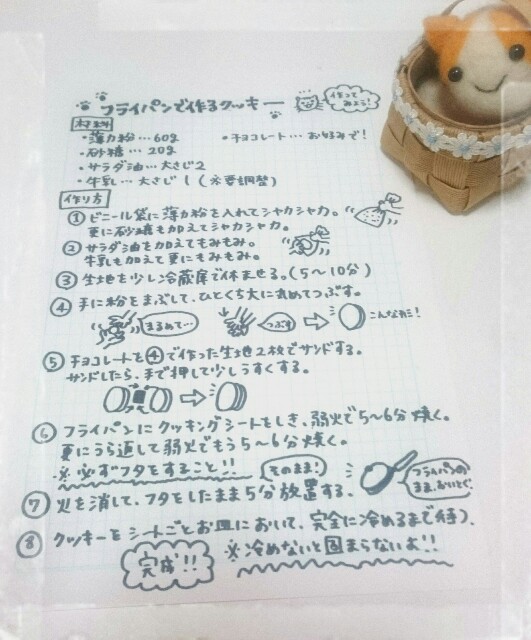 フライパンで作るクッキー
作って
みよう!
材料
・薄力粉…60g
・チョコレート…お好みで!
・砂糖…20g
・サラダ油…大さじ2
・牛乳…大さじ1(※要調整)
作り方
①ビニール袋に薄力粉を入れてシャカシャカ。
更に砂糖も加えてシャカシャカ。
②サラダ油を加えてもみもみ。
牛乳も加えて更にもみもみ。
③生地を少し冷蔵庫で休ませる。(5~10分)
④手に粉をまぶして、ひとくち大に丸めてつぶす。
まるめて…
つぶす
こんなカンジ!
⑤チョコレートを④で作った生地2枚でサンドする。
サンドしたら、手で押して少しうすくする。
⑥フライパンにクッキングシートをしき、弱火で5~6分焼く。
更にうら返して弱火でもう5~6分焼く。
※必ずフタをすること!!
そのまま!
フライパンの
まま、おいとく。
⑦火を消して、フタをしたまま5分放置する。
⑧クッキーをシートごとお皿において、完全に冷めるまで待つ。
※冷めないと固まらないよ!!
完成!!